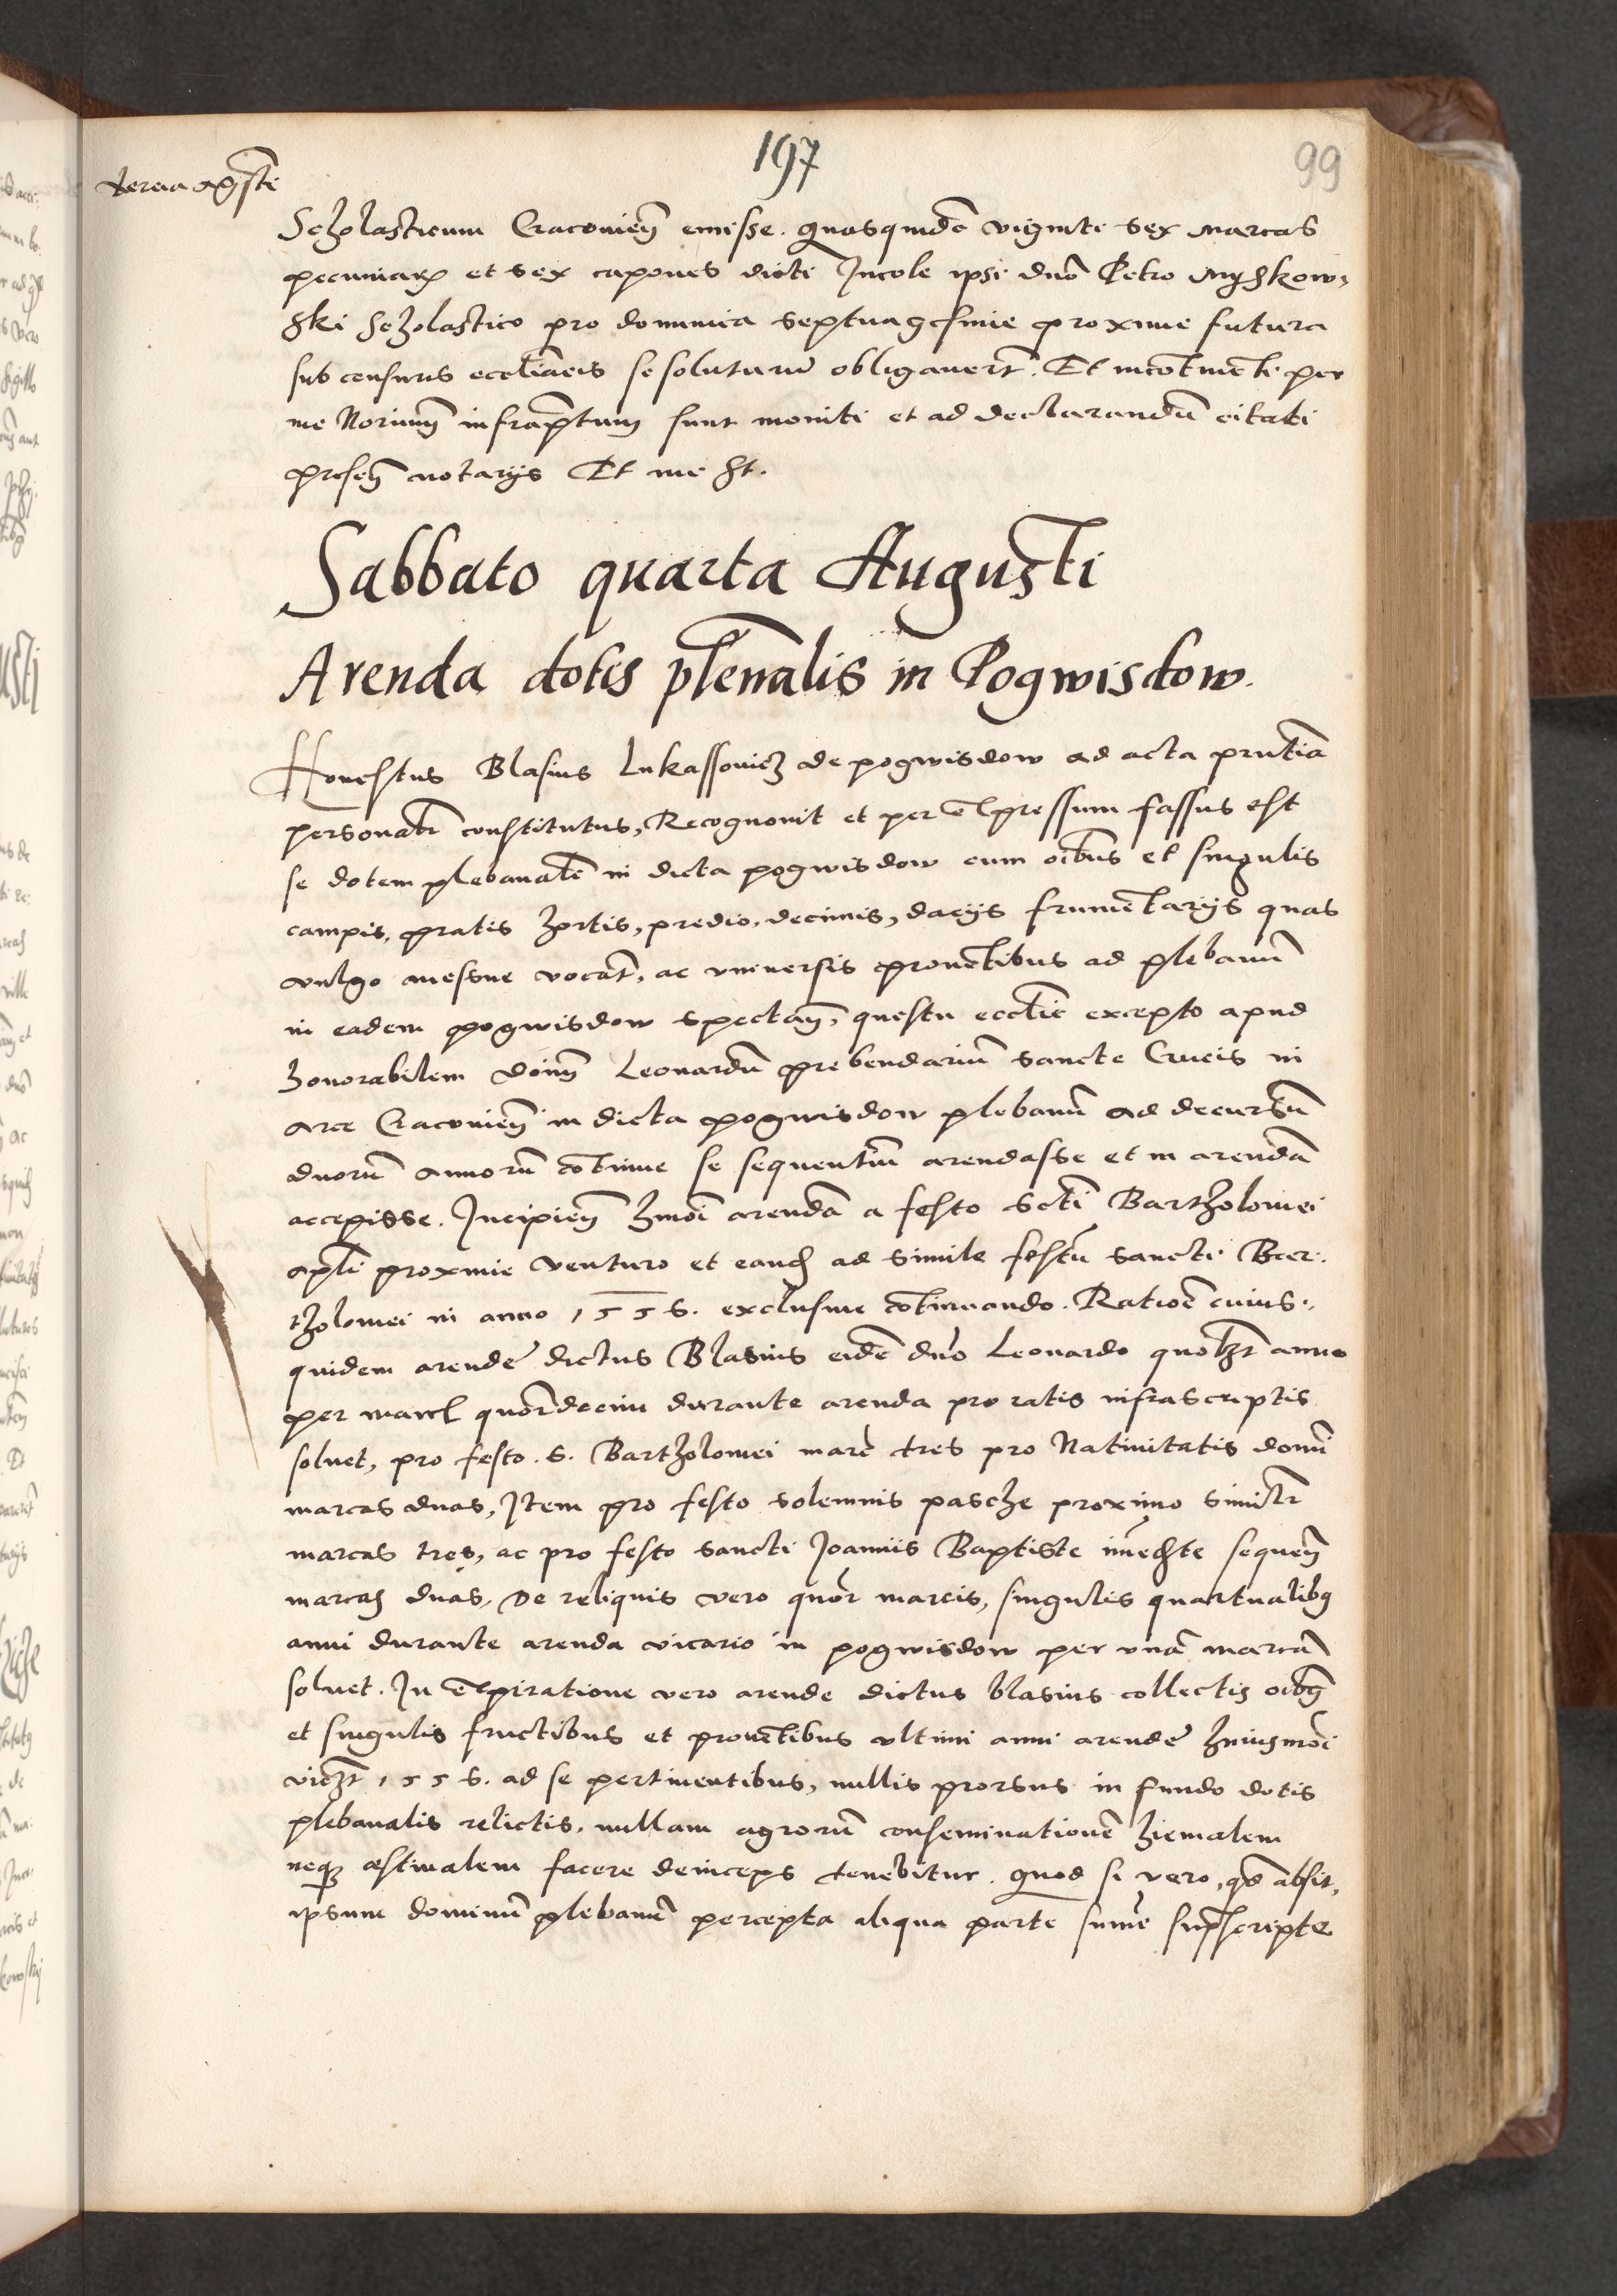 197
99
tercia Augusti
Scholasticum Cracovień emisse. Quasquidē viginti sex marcas
pecuniarꝝ et sex capones dicti Incole ipsi dnō Petro Myskow,
ski Scholastico pro dominica septuagesimie proxime futura
sub censuris eccliācis se soluturū obligauerūt. Et incōtinēti per
me Notriuḿ infrāptum sunt moniti et ad declarandū citati
preseń notarijs Et me St.
Sabbato quarta Augusti
Arenda dotis plēnalis in Pogwisdow.
Honestus Blasius Lukassouicz de pogwisdow ad acta prntiā
personalr̄ constitutus, Recognouit et per ex̄pressum fassus est
se dotem plebanalē in dicta pogwisdow cum oībus et singulis
campis, pratis hortis, predio, decimis, dacijs frumētarijs quas
vulgo messne vocāt, ac vniuersis prouētibus ad plebanū
in eadem pogwisdow spectań, questu ecclīe excepto apud
honorabilem dōnḿ Leonardū prebendariū sancte Crucis in
arce Cracovień in dicta pogwisdow plebanū ad decursū
duorū annorū cōtinue se sequentiū arendasse et in arendā
accepisse. Incipień hmōi arendā a festo sctī Bartholomei
apłi proxime venturo et eandꝫ ad simile festū sancti Bar.
tholomei in anno 1556. exclusiue cōtinuando. Ratiōe cuius,
quidem arende dictus Blasius eidē dnō Leonardo quolꝫt anno
per marcł quōrdecim durante arenda pro ratis infrascriptis
soluet, pro festo. S. Bartholomei marc̄ tres pro Natiuitatis domī
marcas duas, Item pro festo solemnis pasche proximo similtr̄
marcas tres, ac pro festo sancti Joannis Baptiste īmedꝫte sequeń
marcas duas, De reliquis vero quōr marcis, singulis quartualibꝯ
anni durante arenda vicario in pogwisdow per vnā marcā
soluet. In ex̄piratione vero arende dictus blasius collectis oībꝯ
et singulis fructibus et prouētibus vltimi anni arende huiusmōi
vidꝫt 1556. ad se pertinentibus, nullis prorsus in fundo dotis
plebanalis relictis, nullam agrorū conseminationē hiemalem
neqꝫ æstiualem facere deinceps tenebitur. Quod si vero, qd absit,
ipsum dominū plebanū percepta aliqua parte sum̄e supr̄scripte